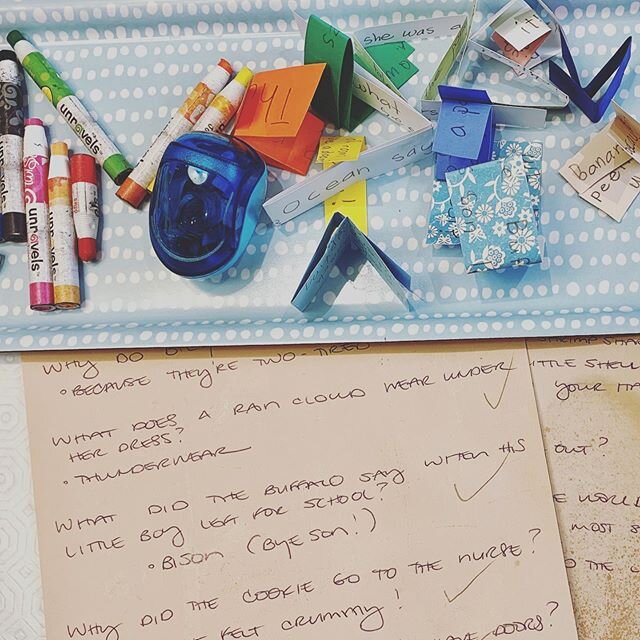 unravels
unravels
unravels
she was a
what
ocean say
banana
peel
WHY DO
• BECAUSE THEY'RE TWO-TIRED
WHAT DOES A RAIN CLOUD WEAR UNDER
HER DRESS?
• THUNDERWEAR
WHAT DID THE BUFFALO SAY WHEN HIS
LITTLE BOY LEFT FOR SCHOOL?
• BISON (BYE SON!)
WHY DID THE COOKIE GO TO THE NURSE?
FELT CRUMMY!
DOORS?
SHRIMP SHAR
LITTLE SHELL
YOUR
OUT?
WORLD
MOST
THE